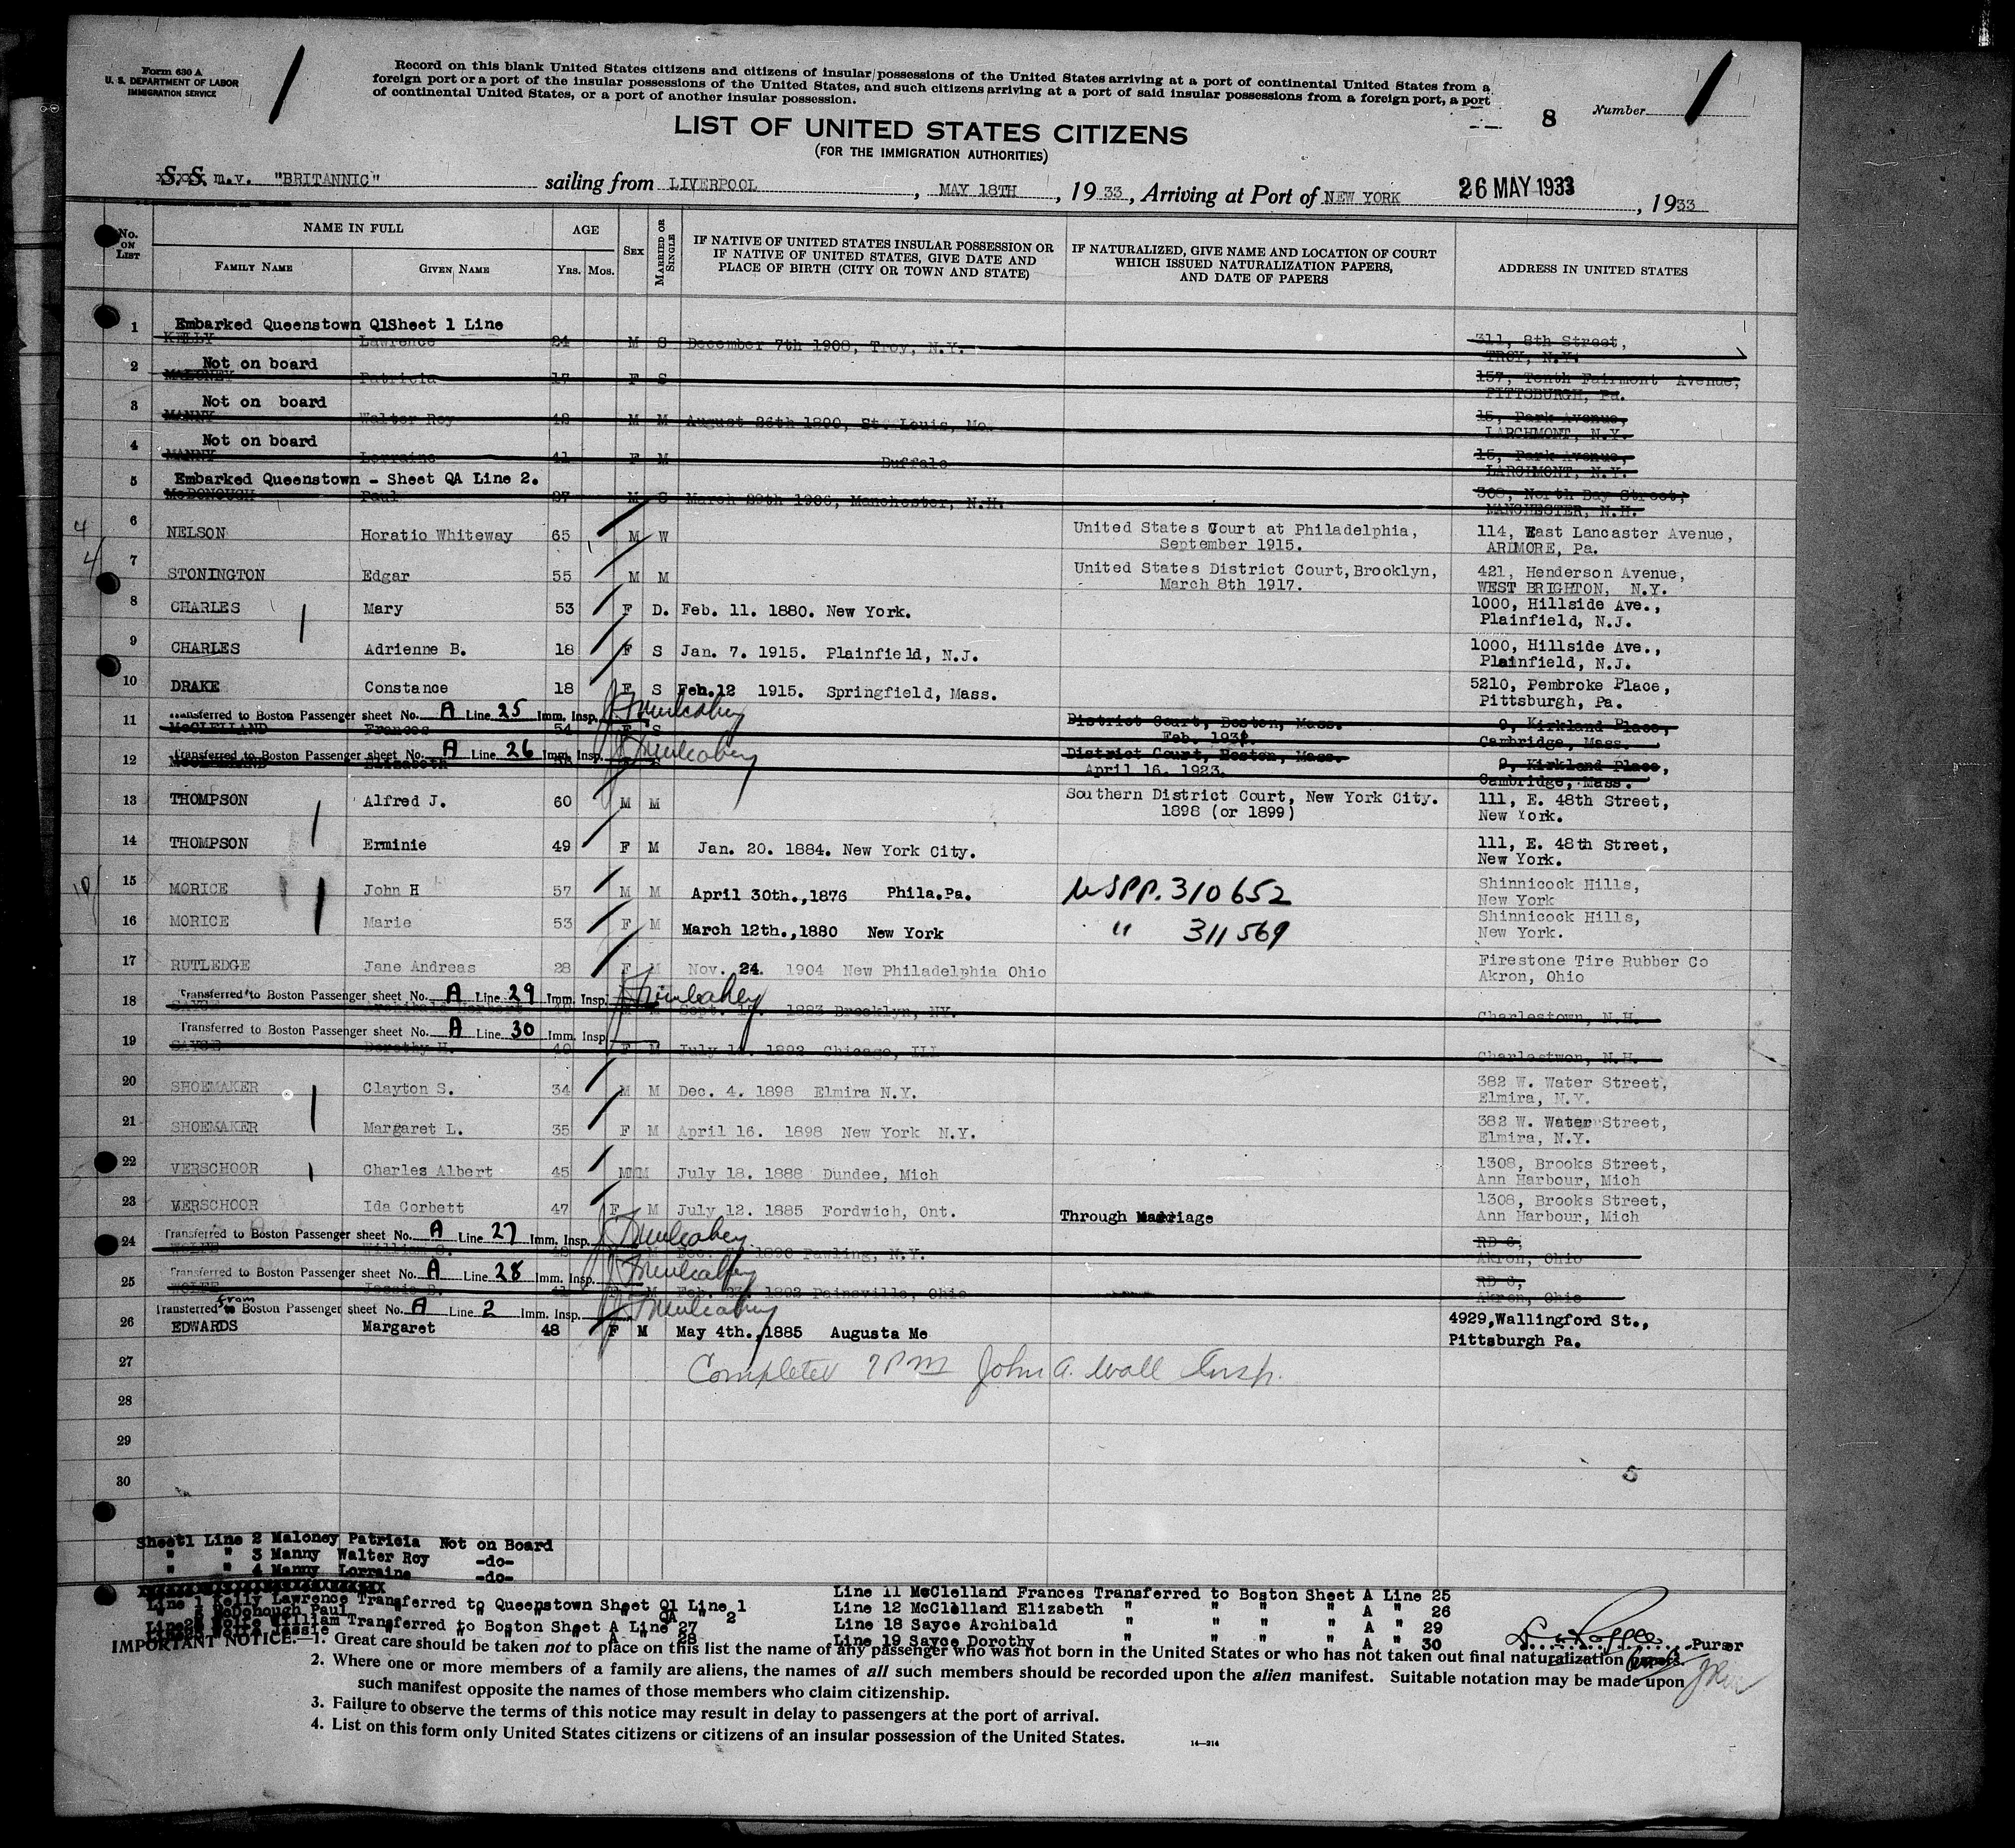 Form 630 A
U. S. DEPARTMENT OF LABOR
IMMIGRATION SERVICE
Record on this blank United States citizens and citizens of insular possessions of the United States arriving at a port of continental United States from a
foreign port or a port of the insular possessions of the United States, and such citizens arriving at a port of said insular possessions from a foreign port, a port
of continental United States, or a port of another insular possession.
8 Number 1
LIST OF UNITED STATES CITIZENS
(FOR THE IMMIGRATION AUTHORITIES)
S.S. m.v. "BRITANNIC" sailing from LIVERPOOL, MAY 18TH, 1933, Arriving at Port of NEW YORK 26 MAY 1933, 1933
No. ON LIST
NAME IN FULL
FAMILY NAME GIVEN NAME
AGE
YRS. MOS.
SEX
MARRIED OR SINGLE
IF NATIVE OF UNITED STATES INSULAR POSSESSION OR
IF NATIVE OF UNITED STATES, GIVE DATE AND
PLACE OF BIRTH (CITY OR TOWN AND STATE)
IF NATURALIZED, GIVE NAME AND LOCATION OF COURT
WHICH ISSUED NATURALIZATION PAPERS,
AND DATE OF PAPERS
ADDRESS IN UNITED STATES
1 Embarked Queenstown Q1Sheet 1 Line
KELLY Lawrence 24 M S December 7th 1908, Troy, N.Y. 311, 8th Street,
TROY, N.Y.
2 Not on board
MALONEY Patricia 17 F S 157, Tenth Fairmont Avenue,
PITTSBURGH, Pa.
3 Not on board
MANNY Walter Roy 42 M M August 26th 1890, St. Louis, Mo. 15, Park Avenue,
LARCHMONT, N.Y.
4 Not on board
MANNY Lorraine 41 F M Buffalo 15, Park Avenue,
LARCHMONT, N.Y.
5 Embarked Queenstown - Sheet QA Line 2.
McDONOUGH Paul 27 M S March 29th 1906, Manchester, N.H. 308, North Bay Street,
MANCHESTER, N.H.
6 NELSON Horatio Whiteway 65 M W United States Court at Philadelphia, 114, East Lancaster Avenue,
September 1915. ARDMORE, Pa.
7 STONINGTON Edgar 55 M M United States District Court, Brooklyn, 421, Henderson Avenue,
March 8th 1917. WEST BRIGHTON, N.Y.
8 CHARLES Mary 53 F D. Feb. 11. 1880. New York. 1000, Hillside Ave.,
Plainfield, N.J.
9 CHARLES Adrienne B. 18 F S Jan. 7. 1915. Plainfield, N.J. 1000, Hillside Ave.,
Plainfield, N.J.
10 DRAKE Constance 18 F S Feb.12 1915. Springfield, Mass. 5210, Pembroke Place,
Pittsburgh, Pa.
Transferred to Boston Passenger sheet No. A Line 25 Imm. Insp. J Mulcahey
11 McCLELLAND Frances 54 F S District Court, Boston, Mass. 9, Kirkland Place,
Feb. 1931. Cambridge, Mass.
Transferred to Boston Passenger sheet No. A Line 26 Imm. Insp. J Mulcahey
12 McCLELLAND Elizabeth District Court, Boston, Mass. 9, Kirkland Place,
April 16. 1923. Cambridge, Mass.
13 THOMPSON Alfred J. 60 M M Southern District Court, New York City. 111, E. 48th Street,
1898 (or 1899) New York.
14 THOMPSON Erminie 49 F M Jan. 20. 1884. New York City. 111, E. 48th Street,
New York.
15 MORICE John H 57 M M April 30th.,1876 Phila.Pa. USPP. 310652 Shinnicock Hills,
New York
16 MORICE Marie 53 F M March 12th.,1880 New York " 311569 Shinnicock Hills,
New York.
17 RUTLEDGE Jane Andreas 28 F M Nov. 24. 1904 New Philadelphia Ohio Firestone Tire Rubber Co
Akron, Ohio
Transferred to Boston Passenger sheet No. A Line 29 Imm. Insp. J Mulcahey
18 SAYCE Archibald Herbert 49 M M Sept. 1883 Brooklyn, NY. Charlestown, N.H.
Transferred to Boston Passenger sheet No. A Line 30 Imm. Insp.
19 SAYCE Dorothy H. 40 F M July 1892 Chicago, Ill Charlestwon, N.H.
20 SHOEMAKER Clayton S. 34 M M Dec. 4. 1898 Elmira N.Y. 382 W. Water Street,
Elmira, N.Y.
21 SHOEMAKER Margaret L. 35 F M April 16. 1898 New York N.Y. 382 W. Water Street,
Elmira, N.Y.
22 VERSCHOOR Charles Albert 45 MMM July 18. 1888 Dundee, Mich 1308, Brooks Street,
Ann Harbour, Mich
23 VERSCHOOR Ida Corbett 47 F M July 12. 1885 Fordwich, Ont. Through Marriage 1308, Brooks Street,
Ann Harbour, Mich
Transferred to Boston Passenger sheet No. A Line 27 Imm. Insp. J Mulcahey
24 WOLFE William S. 42 M Dec. 1890 Pawling, N.Y. RD 6,
Akron, Ohio
Transferred to Boston Passenger sheet No. A Line 28 Imm. Insp. J Mulcahey
25 WOLFE Jessie B. 41 F M Feb. 1892 Painsville, Ohio RD 6,
Akron, Ohio
Transferred from Boston Passenger sheet No. A Line 2 Imm. Insp. J Mulcahey
26 EDWARDS Margaret 48 F M May 4th.,1885 Augusta Me 4929,Wallingford St.,
Pittsburgh Pa.
27 Completed 7PM John A. Wall Insp.
28
29
30
Sheet1 Line 2 Maloney Patricia Not on Board
" " 3 Manny Walter Roy -do-
" " 4 Manny Lorraine -do-
Line 1 Kelly Lawrence Transferred to Queenstown Sheet Q1 Line 1
" 5 McDonough Paul " " " " QA " 2
Line 24 Wolfe William Transferred to Boston Sheet A Line 27
Line 25 Wolfe Jessie " " " " A " 28
Line 11 McClelland Frances Transferred to Boston Sheet A Line 25
Line 12 McClelland Elizabeth " " " " A " 26
Line 18 Sayce Archibald " " " " A " 29
Line 19 Sayce Dorothy " " " " A " 30
Purser
IMPORTANT NOTICE.—1. Great care should be taken not to place on this list the name of any passenger who was not born in the United States or who has not taken out final naturalization papers.
2. Where one or more members of a family are aliens, the names of all such members should be recorded upon the alien manifest. Suitable notation may be made upon
such manifest opposite the names of those members who claim citizenship.
3. Failure to observe the terms of this notice may result in delay to passengers at the port of arrival.
4. List on this form only United States citizens or citizens of an insular possession of the United States.
14—214